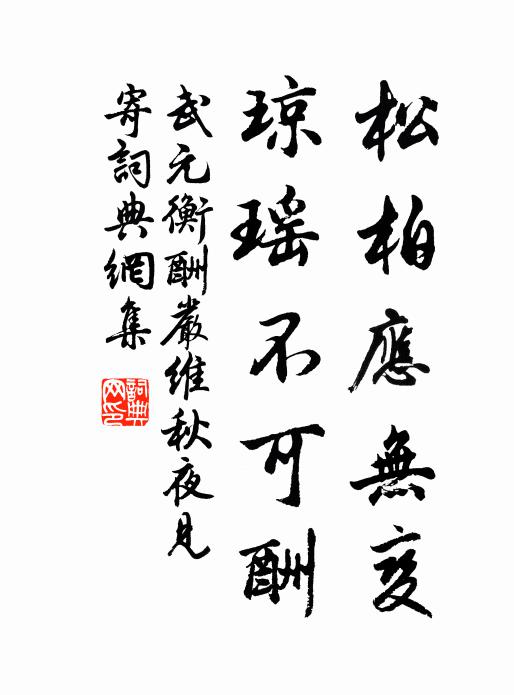 松柏應無變
琼瑶不可酬
武元衡酬嚴維秋夜見
寄詞典網集
詞典网印